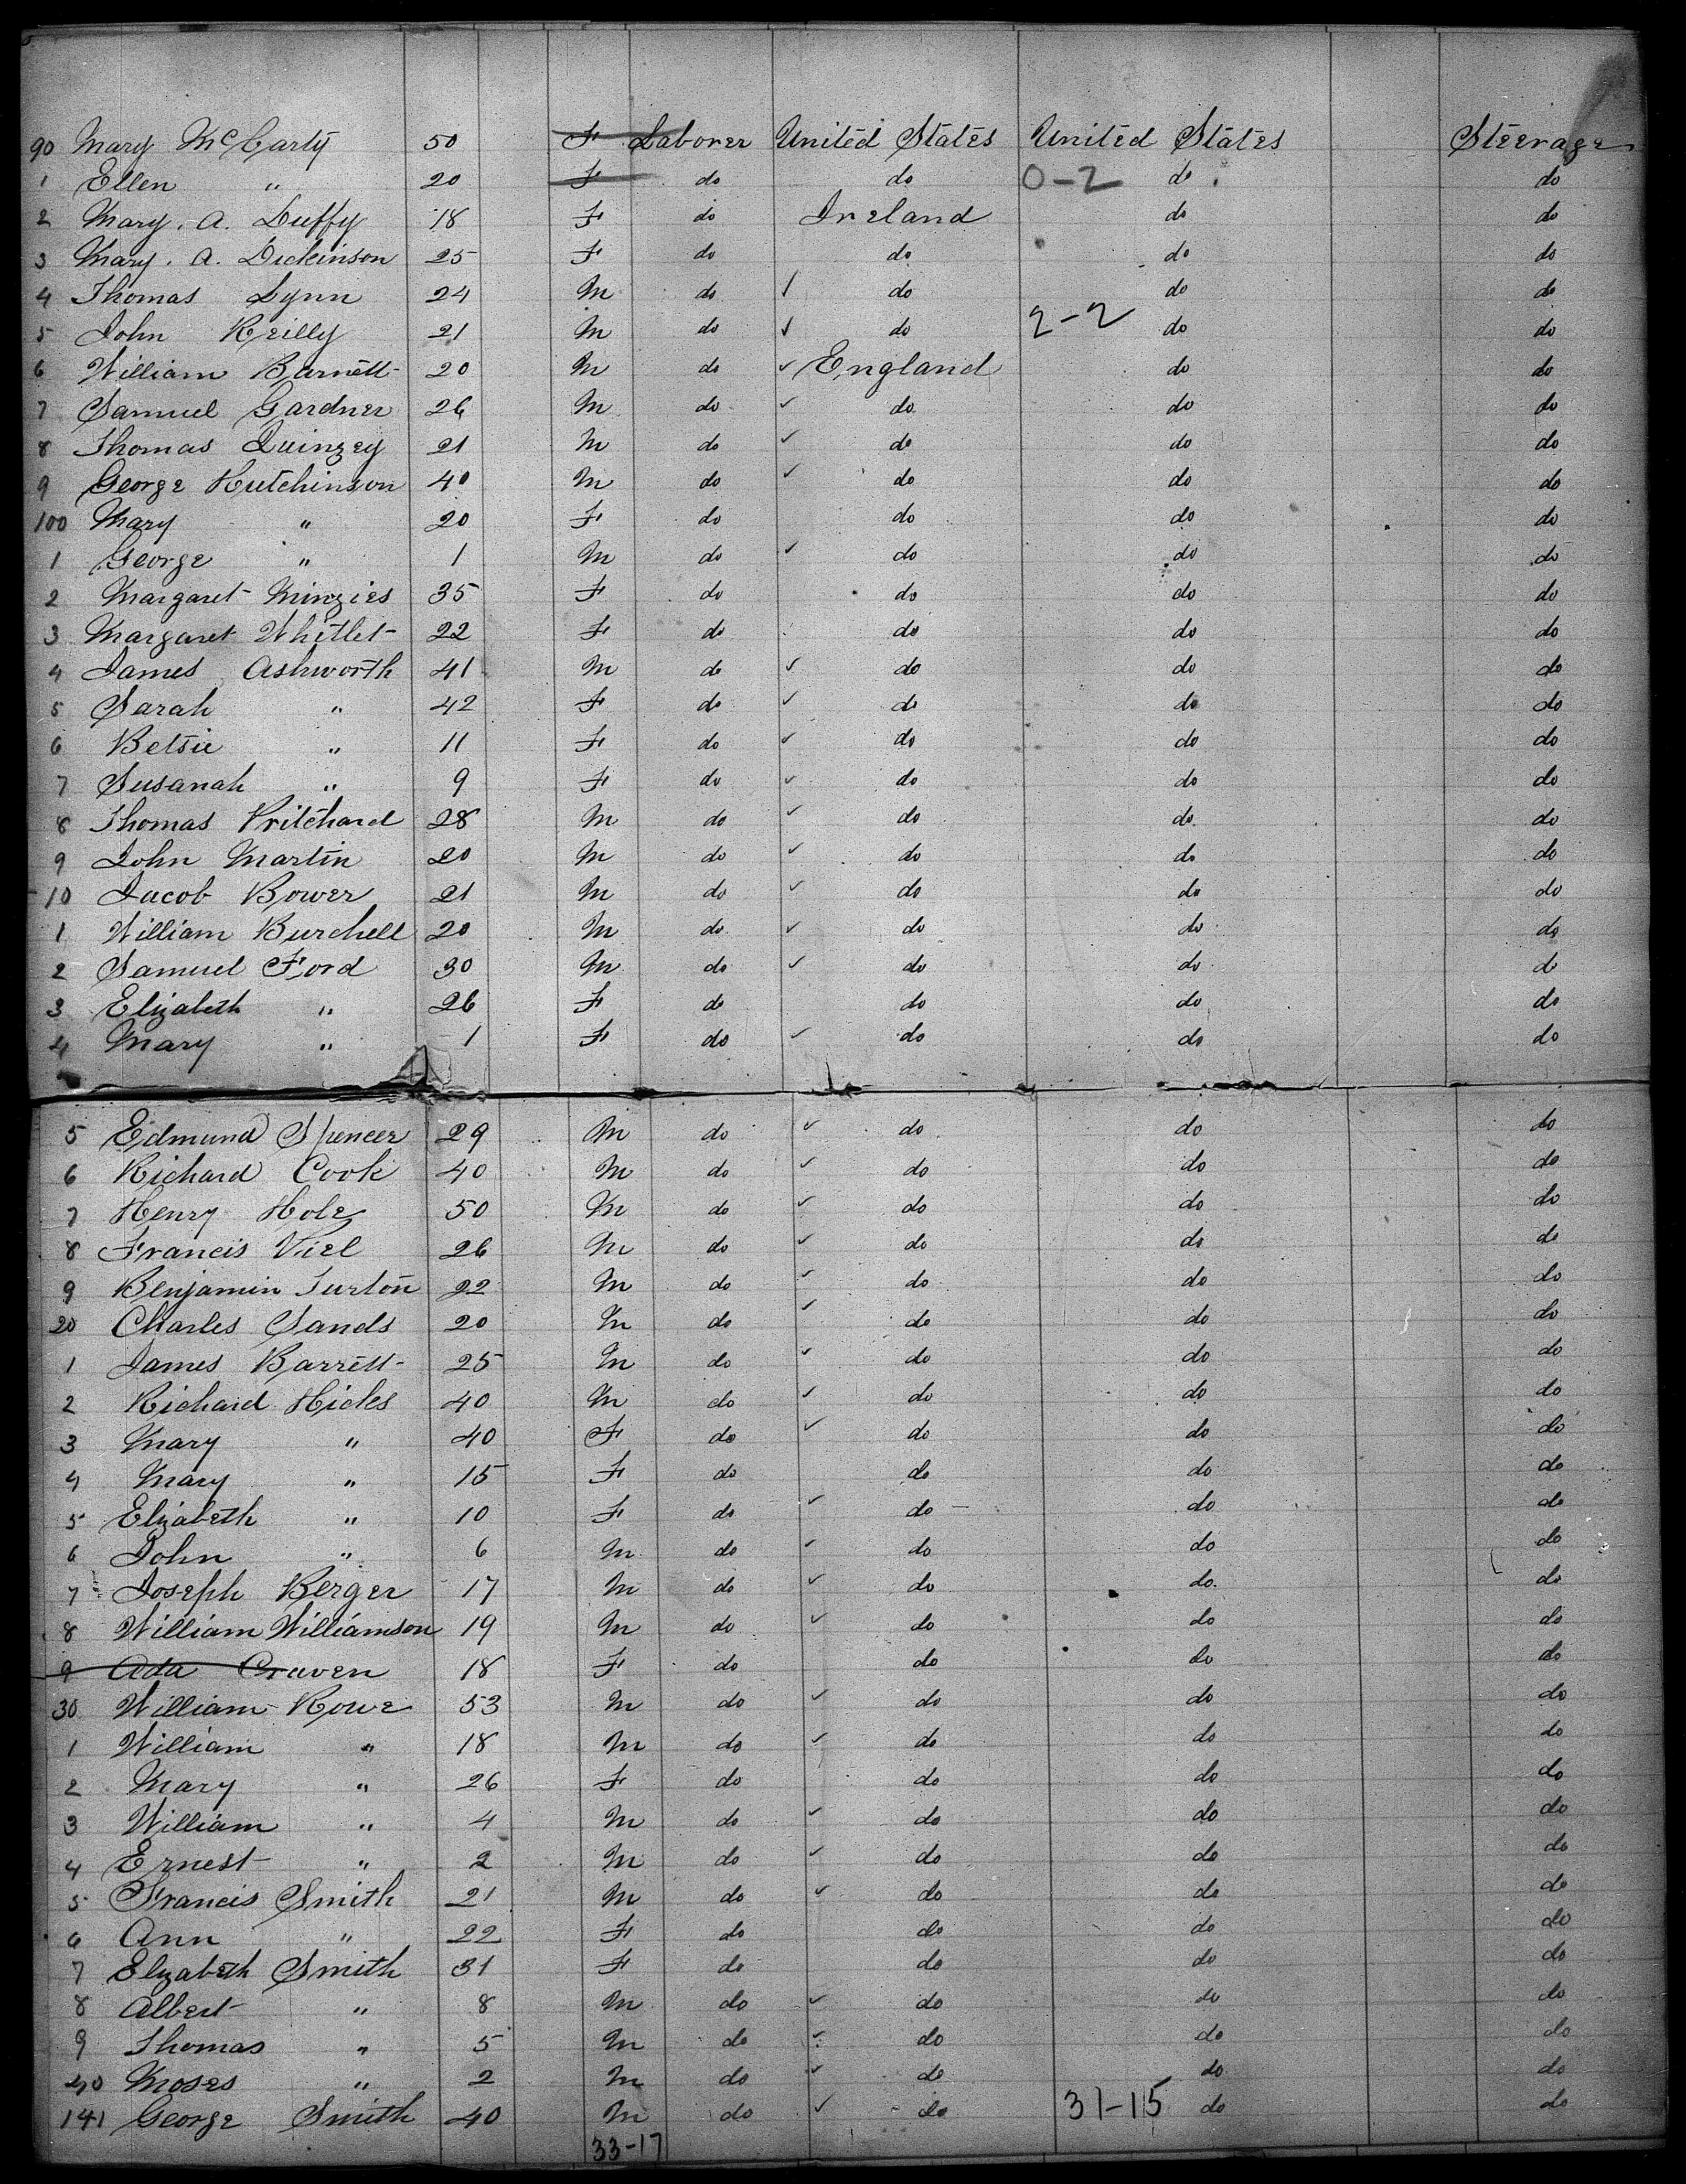 90 Mary McCarty 50 F Laborer United States United States Steerage
1 Ellen " 20 F do do 0-2 do do
2 Mary. A. Duffy 18 F do Ireland do do
3 Mary. A. Dickinson 25 F do do do do
4 Thomas Lynn 24 M do ✓ do do do
5 John Reilly 21 M do ✓ do 2-2 do do
6 William Barnett 20 M do ✓ England do do
7 Samuel Gardner 26 M do ✓ do do do
8 Thomas Quinzey 21 M do ✓ do do do
9 George Hutchinson 40 M do ✓ do do do
100 Mary " 20 F do do do do
1 George " 1 M do ✓ do do do
2 Margaret Minzies 35 F do do do do
3 Margaret Whitlet 22 F do do do do
4 James Ashworth 41 M do ✓ do do do
5 Sarah " 42 F do ✓ do do do
6 Betsie " 11 F do ✓ do do do
7 Susanah " 9 F do ✓ do do do
8 Thomas Pritchard 28 M do ✓ do do do
9 John Martin 20 M do ✓ do do do
10 Jacob Bower 21 M do ✓ do do do
1 William Burchell 20 M do ✓ do do do
2 Samuel Ford 30 M do ✓ do do do
3 Elizabeth " 26 F do do do do
4 Mary " 1 F do ✓ do do do
5 Edmund Spencer 29 M do ✓ do do do
6 Richard Cook 40 M do ✓ do do do
7 Henry Hole 50 M do ✓ do do do
8 Francis Viel 26 M do ✓ do do do
9 Benjamin Turton 22 M do ✓ do do do
20 Charles Sands 20 M do ✓ do do do
1 James Barrett 25 M do ✓ do do do
2 Richard Hicks 40 M do ✓ do do do
3 Mary " 40 F do ✓ do do do
4 Mary " 15 F do do do do
5 Elizabeth " 10 F do ✓ do do do
6 John " 6 M do ✓ do do do
7 Joseph Berger 17 M do ✓ do do do
8 William Williamson 19 M do ✓ do do do
9 Ada Craven 18 F do do do do
30 William Rowe 53 M do ✓ do do do
1 William " 18 M do ✓ do do do
2 Mary " 26 F do do do do
3 William " 4 M do ✓ do do do
4 Ernest " 2 M do ✓ do do do
5 Francis Smith 21 M do ✓ do do do
6 Ann " 22 F do do do do
7 Elizabeth Smith 31 F do do do do
8 Albert " 8 M do ✓ do do do
9 Thomas " 5 M do ✓ do do do
40 Moses " 2 M do ✓ do do do
141 George Smith 40 M do ✓ do 31-15 do do
33-17